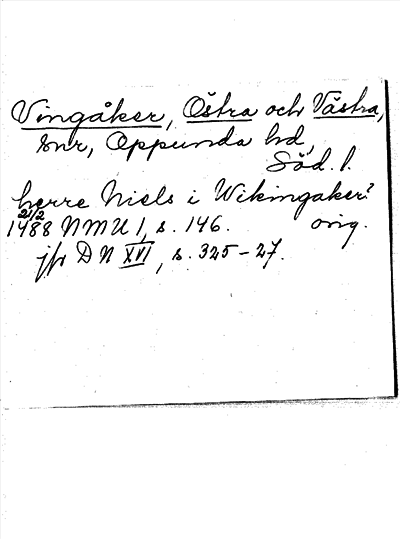 Vingåker, Östra och Västra,
snr, Oppunda hd,
Söd. l.
herre Niels i Wikingaker?
21/2
1488 NMU 1, s. 146. orig.
jfr DN XVI, s. 325-27.